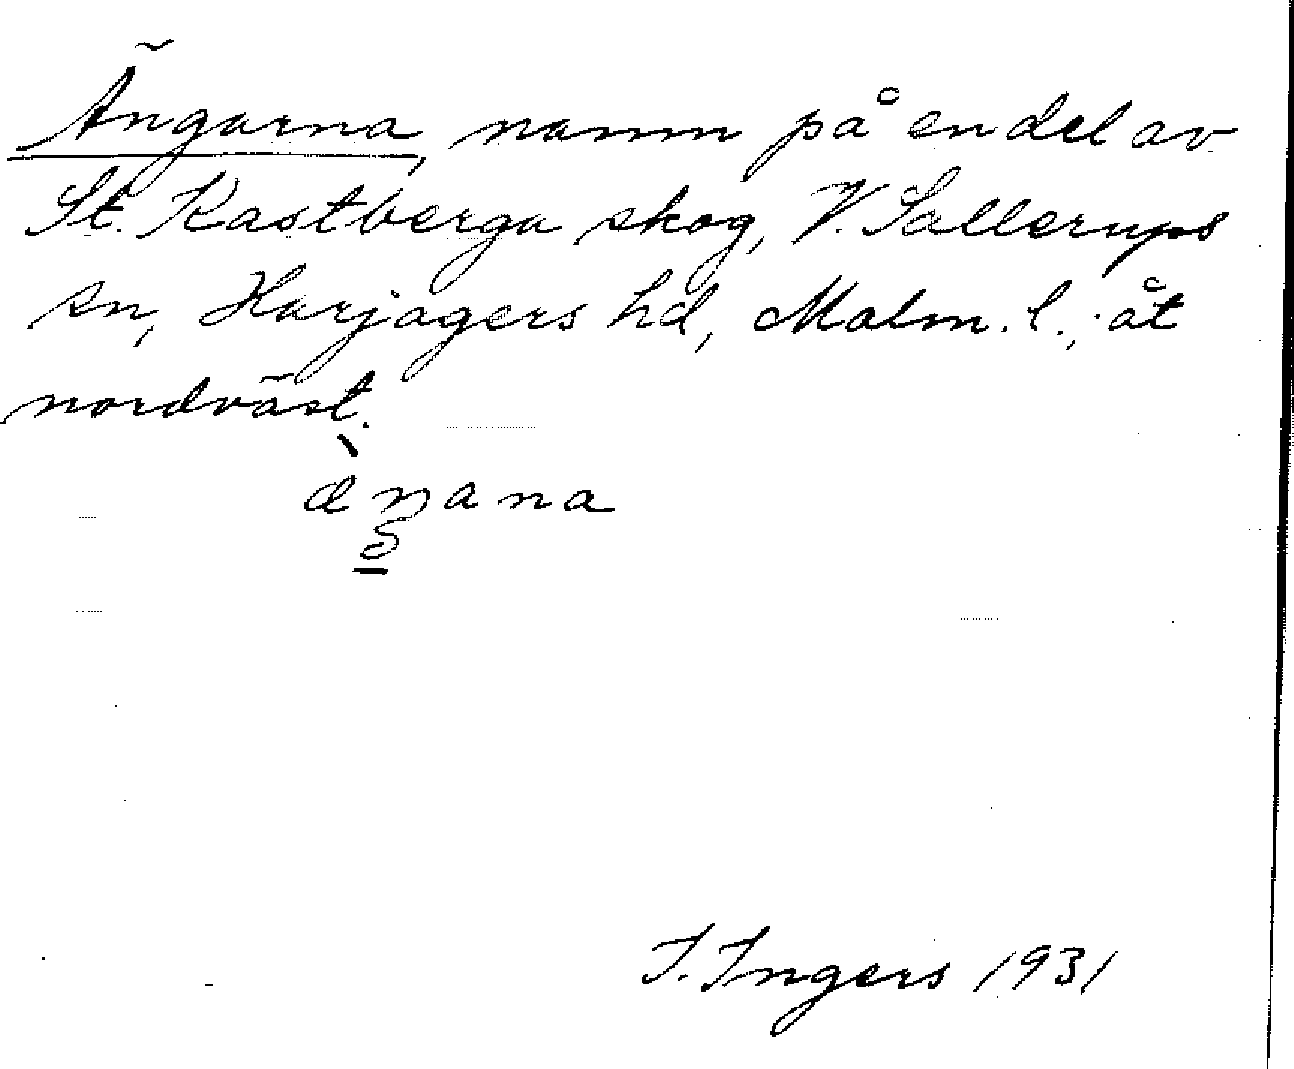 Ängarna, namn på en del av
St. Kastberga skog, V. Sallerups
sn, Harjagers hd, Malm. l., åt
nordväst.
æ̀ŋana
I. Ingers 1931